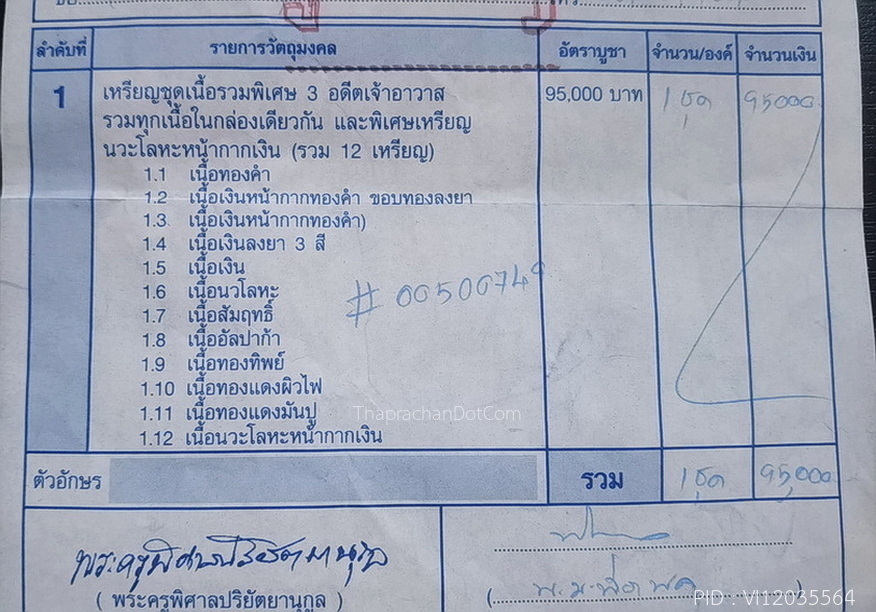 ลำดับที่ รายการวัตถุมงคล อัตราบูชา จำนวน/องค์ จำนวนเงิน
1 เหรียญชุดเนื้อรวมพิเศษ 3 อดีตเจ้าอาวาส 95,000 บาท 1 ชุด 95000
รวมทุกเนื้อในกล่องเดียวกัน และพิเศษเหรียญ
นวะโลหะหน้ากากเงิน (รวม 12 เหรียญ)
1.1 เนื้อทองคำ
1.2 เนื้อเงินหน้ากากทองคำ ขอบทองลงยา
1.3 เนื้อเงินหน้ากากทองคำ)
1.4 เนื้อเงินลงยา 3 สี
1.5 เนื้อเงิน
1.6 เนื้อนวโลหะ
# 00500749
1.7 เนื้อสัมฤทธิ์
1.8 เนื้ออัลปาก้า
1.9 เนื้อทองทิพย์
1.10 เนื้อทองแดงผิวไฟ
1.11 เนื้อทองแดงมันปู
ThaprachanDotCom
1.12 เนื้อนวะโลหะหน้ากากเงิน
ตัวอักษร รวม 1 ชุด 95,000
( พระครูพิศาลปริยัตยานุกูล )
PID - VI12035564